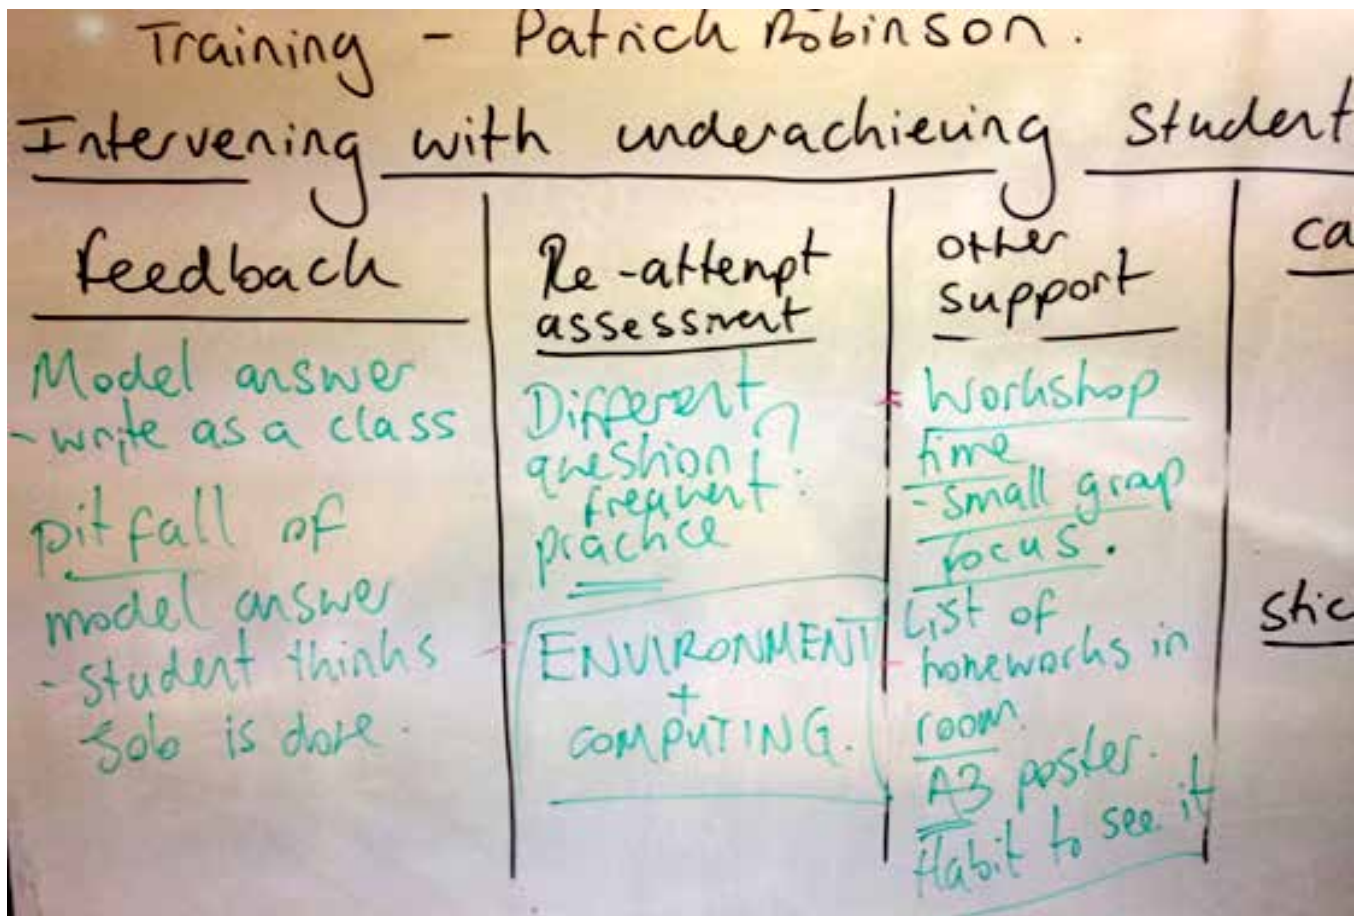 Training - Patrick Robinson.
Intervening with underachieving student
feedback
Model answer
- write as a class
pitfall of
model answer
- student thinks
Job is done.
Re-attempt
assessment
Different
question?
frequent
practice
ENVIRONMENT
+
COMPUTING.
other
support
Workshop
time
- small group
focus.
List of
homeworks in
room.
A3 poster.
Habit to see it
ca
stic